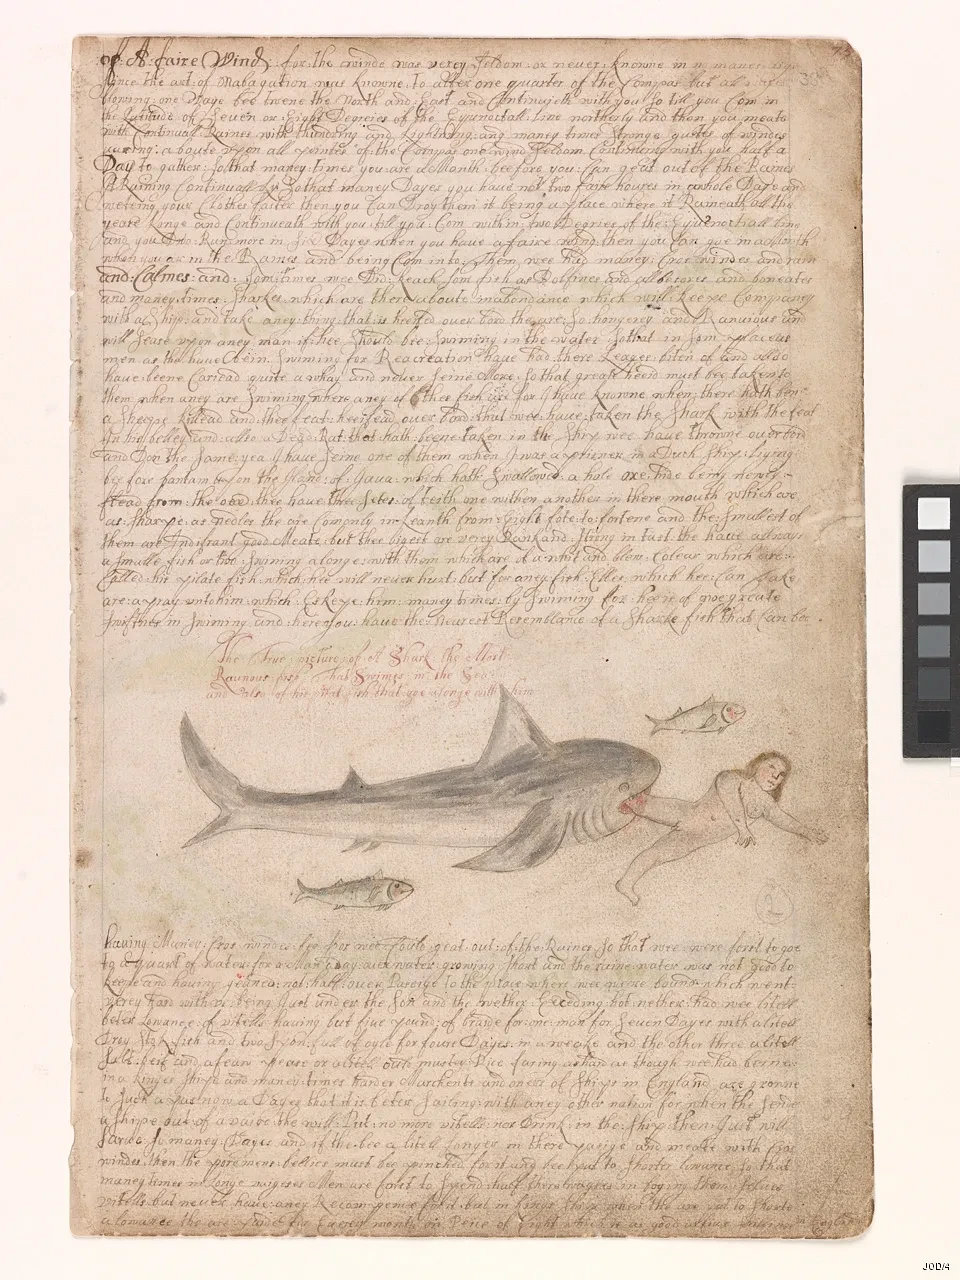 of A faire Wind for the winde was verey Seldom or never knowne in
Since the art of Navagation was knowne to alter one quarter of the Compas but
blowing one Waye bee twene the North and East and Continueth with you till you Com in
the Latitude of Seven or Eight Degreies of the Equnoctiall line northerly and then you meate
with Continuall Raines with thundring and Lightning and maney times Strange gustes of windes
a boute upon all pointes of the Compas one wind Seldom Continuing with you half a
Day to gather Sothat maney times you are a Month beefore you Can geat out of the Raines
A Raining Continually Sothat maney Dayes you have not two faire houres in a whole Daye and
weteing your Clothes faster then you Can Droy them it being a place where it Raineath all the
yeare Longe and Continueath with you till you Com within two Degrees of the Equenoctiall line
and you Run more in Six Dayes when you have a faire wind then you Can
when you ar in the Raines and being Com into them wee had maney Cros windes and rain
and Calmes and Som times wee Did Keach Som fish as Dolfines and albecores and boneates
and maney times Sharkes which are there aboute in abondance which will Keepe Companey
with a Shipe and take aney thing that is heaved over bord the are So hongerey and Ravinous and
will Sease upon aney man if hee Should bee Swiming in the water Sothat in Som places
men as the have bein Swiming for Reacreation have had there Leages biten of and allso
have beene Caried quite a whay and never Seine More So that greate heeid must bee taken to
them when aney are Swiming where aney of these fish is for I have knowne when there hath ben
a Sheepe Kiled and the feeat heeifed over bord that wee have taken the Shark with the feat
in his belley and also a Dead Rat that hath beene taken in the Ship wee have throwne over bord
and Don the Same yea I have Seine one of them when I was a prisner in a Duch Ship Liying
be fore bantam upon the Iland of Gava which hath Swallowed a hole oxe hide being newly
flead from the oxe thee have thre Setes of teeth one within another in there mouth which are
as sharpe as nedles the are Comonly in Leanth from Eight fote to fortene and the Smallest of
them are Indifrant good Meate but the bigest are verey Rank and Stinging in tast the have allways
a Smalle fish or two Swiming alonge with them which are of a whit and blew Colear which are
Called his pilate fish which hee will never hurt but for aney fish Elles which hee Can take
are a pray unto him which Eskepe him maney times by Swiming for hee is of noe greate
Swiftnes in Swiming and here you have the Nearest Resemblance of a Sharke fish that Can bee
The True picture of A Shark the Most
Raveunous fish That Swimes in the Sea
and Also of his Pilat fish that goe alonge with him
having Maney Cros windes bee for wee Could geat out of the Raines So that wee were forst to goe
to a Quart of water for a Man a Day our water growing Short and the raine water was not good to
Keepe and having gained not half ouer Pasege to the place where wee were bound which went
verey hard with us being Just under the Son and the wether Exceding hot nether had wee litell
beter Lowance of vitells having but five pound of breade for one man for Seven Dayes with a litell
Droy Stok fish and two Spon full of oyle for foure Dayes in a weeke and the other three a litell
Salt beif and a feaw Pease or a litell ould mustey Rice faring as hard as though wee had beene
in a Kinges Shipe and maney times harder Marchents and oners of Shipes in England are growne
to Such a pas now a Dayes that it is beter Sailing with aney other nation for when the Sende
a Shipe out of a vaige the will Put no more vitells nor Drink in the Ship then Just will
Sarve So maney Dayes and if the bee a litell Longer in there pasige and meate with Cros
windes then the poremens bellies must bee pinched for it and bee put to Shorter lowance So that
maney times in Longe vaigees Men are forst to Spend half there wages in boying them Selves
vitells but never have aney Recompence for it but in Kinges Ships when the are put to Shorte
alowance the are paide for Everey month on Peice of Eight which is as good as five